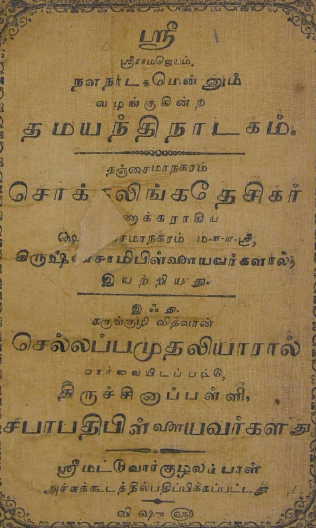 ஸ்ரீ
ஸ்ரீராமஜெயம்.
நளநாடகமென்னும்
வழங்குகின்ற
தமயந்திநாடகம்.
தஞ்சைமாநகரம்
சொக்கலிங்கதேசிகர்
ணக்கராகிய
மாநகரம் ம-ள-ள-ஸ்ரீ,
கிருஷ்ணசாமிபிள்ளையவர்களால்,
இயற்றியது.
இஃது
கருங்குழி வித்வான்
செல்லப்பமுதலியாரால்
பார்வையிடப்பட்டு,
திருச்சினாப்பள்ளி,
சபாபதிபிள்ளையவர்களது
ஸ்ரீமட்டுவார்குழலம்பாள்
அச்சுக்கூடத்தில்பதிப்பிக்கப்பட்டது
விஷு ௵